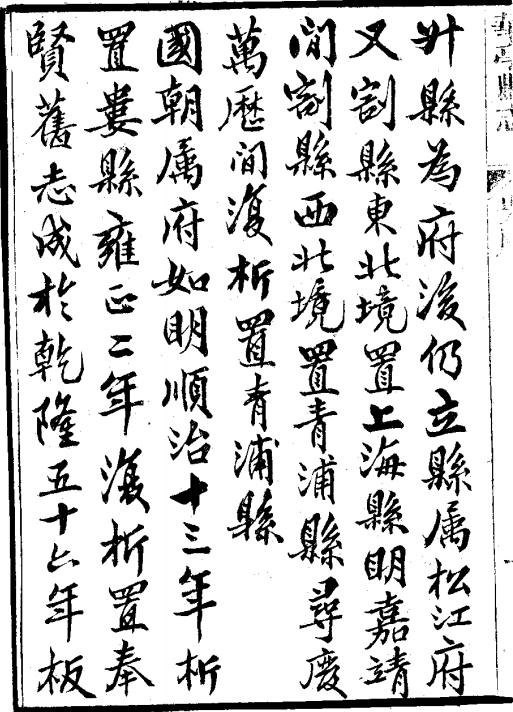 升縣為府後仍立縣属松江府
又割縣東北境置上海縣明嘉靖
間割縣西北境置青浦縣尋廢
萬歷間復析置青浦縣
國朝属府如明順治十三年析
置婁縣雍正二年復析置奉
賢舊志成於乾隆五十六年板